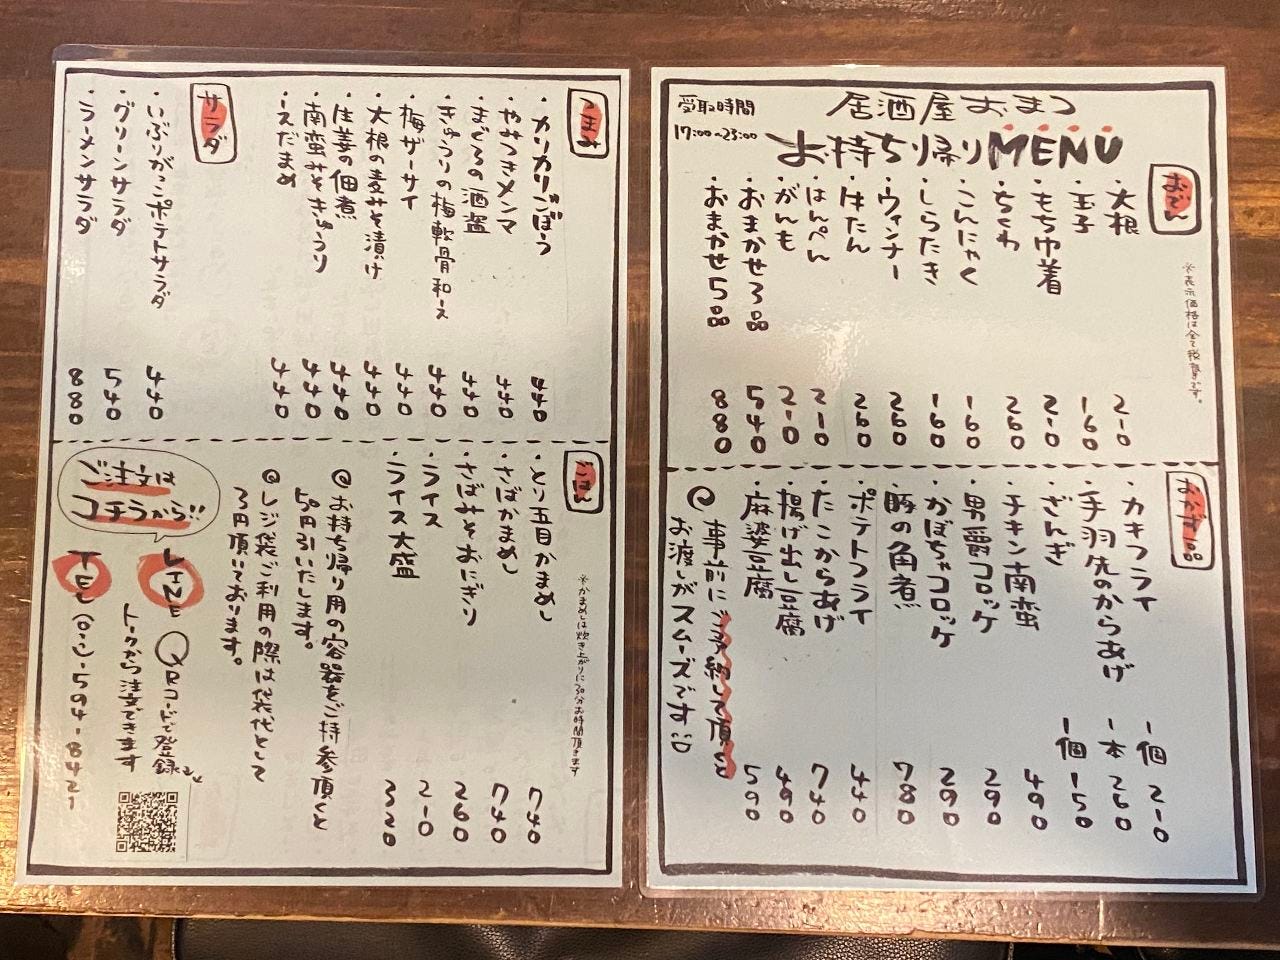 居酒屋おまつ
お持ち帰りMENU
受取時間
17:00~23:00
おでん
※表示価格は全て税込です。
・大根 210
・玉子 160
・もち巾着 210
・ちくわ 260
・こんにゃく 160
・しらたき 160
・ウィンナー 260
・はんぺん 210
・がんも 210
・おまかせ3品 540
・おまかせ5品 880
おかず一品
・カキフライ 1個 210
・手羽先のからあげ 1本 260
・ざんぎ 1個 150
・チキン南蛮 490
・男爵コロッケ 290
・かぼちゃコロッケ 290
・豚の角煮 780
・ポテトフライ 440
・たこからあげ 740
・揚げ出し豆腐 490
・麻婆豆腐 590
@事前にご予約して頂くと
お渡しがスムーズです
つまみ
・カリカリごぼう 440
・やみつきメンマ 440
・まぐろの酒盗 440
・きゅうりの梅軟骨和え 440
・梅ザーサイ 440
・大根の麦みそ漬け 440
・生姜の佃煮 440
・南蛮みそきゅうり 440
・えだまめ 440
サラダ
・いぶりがっこポテトサラダ 440
・グリーンサラダ 540
・ラーメンサラダ 880
ごはん
※かまめしは炊き上がりに30分お時間頂きます
・とり五目かまめし 740
・さばかまめし 740
・さばみそおにぎり 260
・ライス 210
・ライス大盛 320
@お持ち帰り用の容器をご持参頂くと
50円引いたします。
@レジ袋ご利用の際は袋代として
3円頂いております。
ご注文は
コチラから!!
LINE QRコードで登録
トークから注文できます
TEL(011)-594-8421